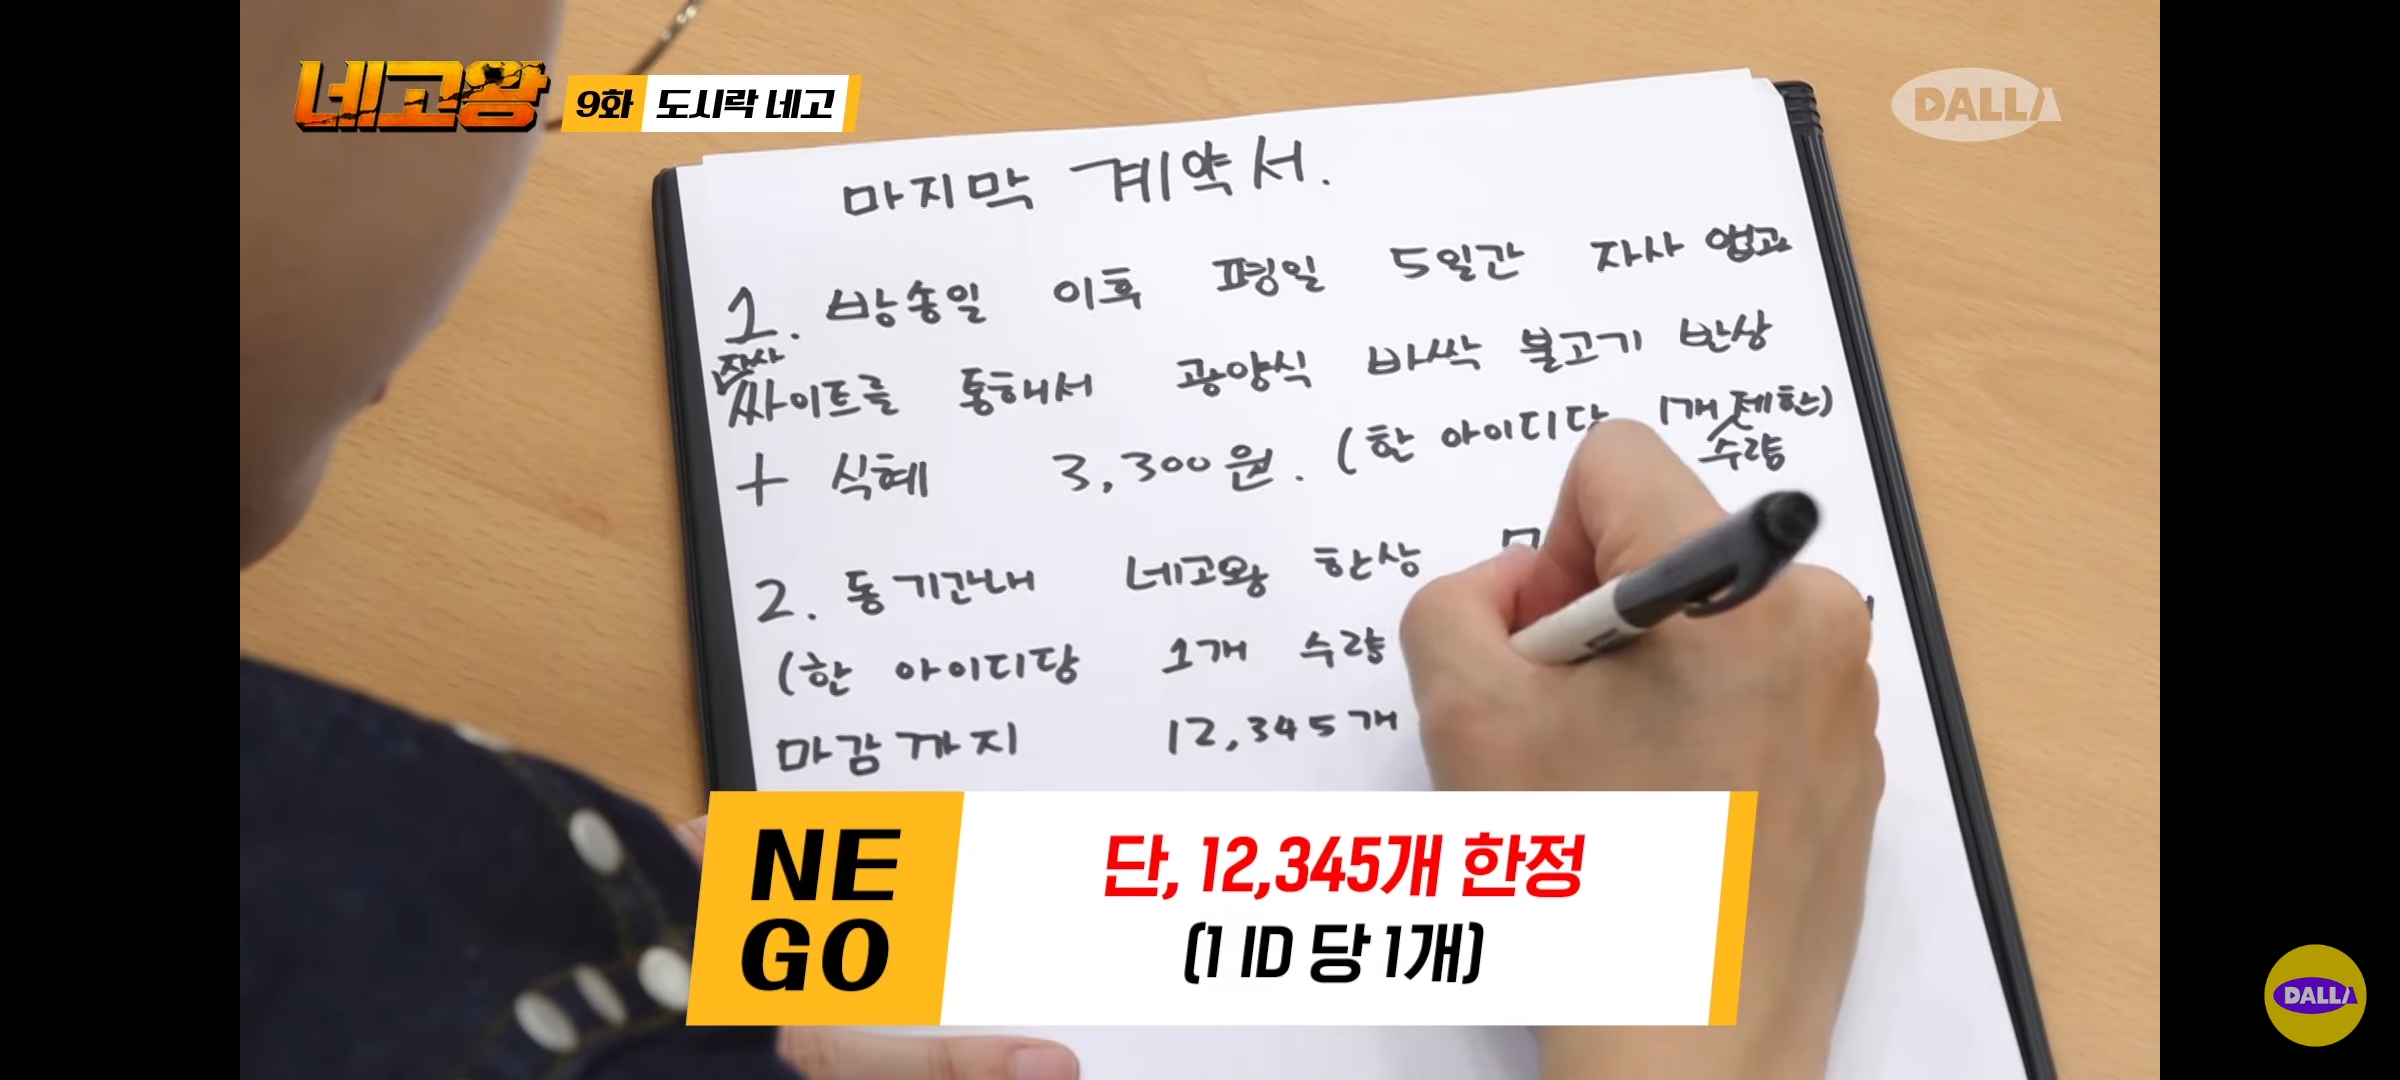 네고왕
9화 도시락 네고
DALLA
마지막 계약서.
1. 방송일 이후 평일 5일간 자사 앱과
자사
싸이트를 통해서 광양식 바싹 불고기 반상
+ 식혜 3,300원. (한 아이디당 1개 제한)
수량
2. 동기간내 네고왕 한상
(한 아이디당 1개 수량
마감까지 12,345개
NE
GO
단, 12,345개 한정
(1 ID 당 1개)
DALLA